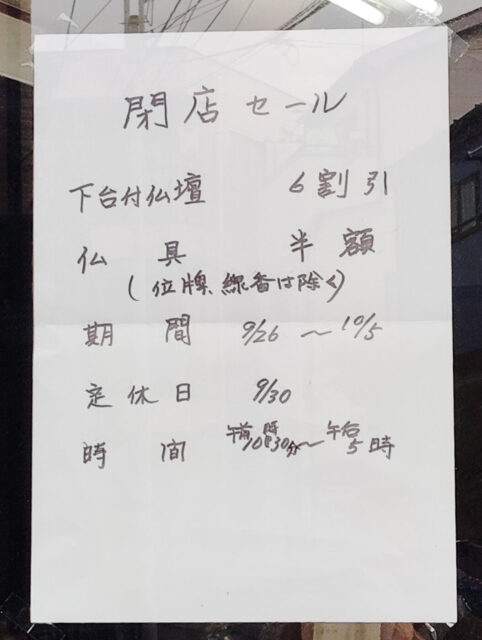 閉店セール
下台付仏壇 6割引
仏具 半額
(位牌、線香は除く)
期間 9/26～10/5
定休日 9/30
時間 午前10時30分～午后5時